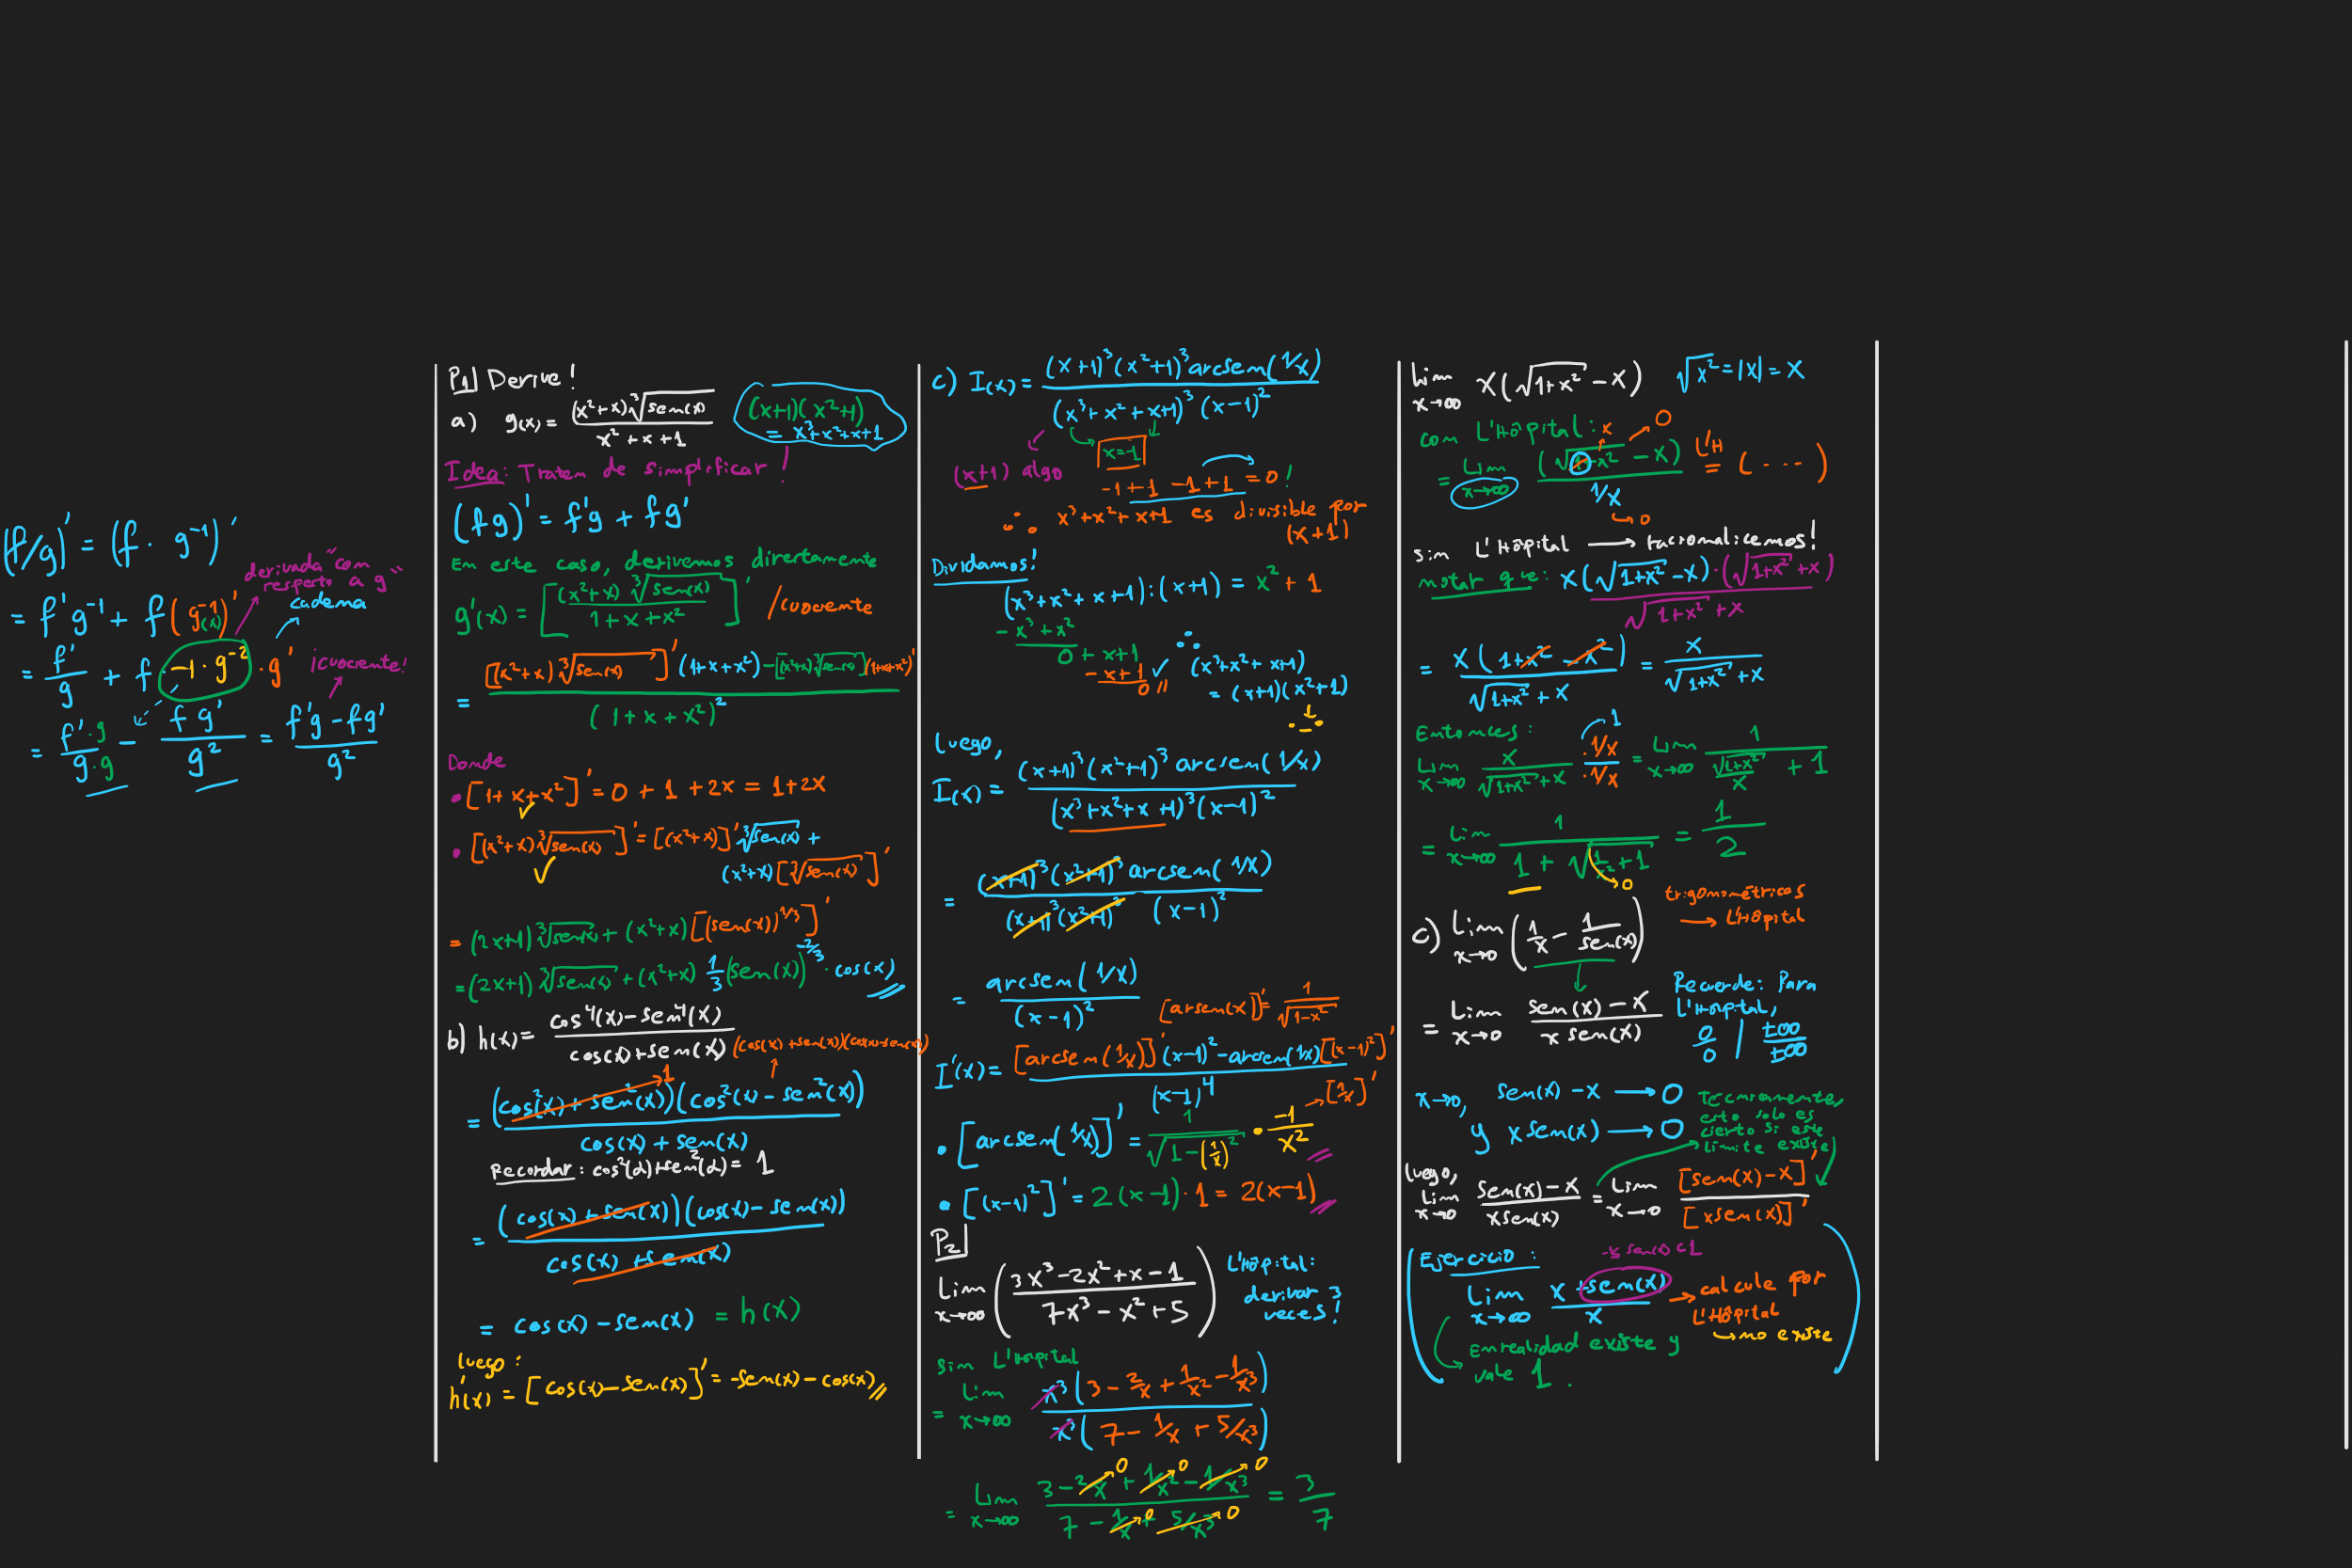 (f/g)' = (f · g⁻¹)'
derivada "con
respecto a g"
cadena
= f'g⁻¹ + f(g⁻¹(x))'
= f'/g + f · -1 · g⁻² · g' ¡cuociente!
= f'·g/g·g - fg'/g² = f'g - fg'/g²
P1| Derive!
a) g(x) = (x²+x)∛sen(x) / x²+x+1
(x+1)(x²+1)
= x³+x²+x+1
Idea: Traten de simplificar!
(fg)' = f'g + fg'
En este caso, derivemos directamente
g'(x) = [(x²+x)∛sen(x) / 1+x+x²]' /cuociente
= [(x²+x)∛sen(x)]'(1+x+x²) - [(x²+x)∛sen(x)](1+x+x²)' / (1+x+x²)²
Donde
• [1+x+x²]' = 0 + 1 + 2x = 1+2x
• [(x²+x)∛sen(x)]' = [(x²+x)]'∛sen(x) +
(x²+x)[∛sen(x)]'
= (2x+1)∛sen(x) + (x²+x)[(sen(x))^1/3]'
= (2x+1)∛sen(x) + (x²+x) 1/3 (sen(x))^-2/3 · cos(x)
b) h(x) = cos⁴(x)-sen⁴(x) / cos(x)+sen(x)
(cos(x)+sen(x))(cos(x)-sen(x))
= (cos²(x)+sen²(x))(cos²(x)-sen²(x)) / cos(x)+sen(x) 1
Recordar: cos²(α)+sen²(α) = 1
= (cos(x)+sen(x))(cos(x)-sen(x)) / cos(x)+sen(x)
= cos(x)-sen(x) = h(x)
luego:
h'(x) = [cos(x)-sen(x)]' = -sen(x)-cos(x)
c) I(x) = (x+1)³(x²+1)³arcsen(1/x) / (x³+x²+x+1)³(x-1)²
x=-1
(x+1) algo
-1+1-1+1=0!
∴ x³+x²+x+1 es divisible por
(x+1)
Dividamos!
(x³+x²+x+1):(x+1) = x²+1
-x³+x²
0+x+1
-x+1 ✓
0 //
∴
(x³+x²+x+1)
= (x+1)(x²+1)
luego,
I(x) = (x+1)³(x²+1)³arcsen(1/x) / (x³+x²+x+1)³(x-1)²
= (x+1)³(x²+1)³arcsen(1/x) / (x+1)³(x²+1)³(x-1)²
= arcsen(1/x) / (x-1)²
[arsen(x)]' = 1/√1-x²
I'(x) = [arcsen(1/x)]'(x-1)² - arcsen(1/x)[(x-1)²]' / (x-1)⁴
→[1/x]'
• [arcsen(1/x)]' = 1/√1-(1/x)² • -1/x²
• [(x-1)²]' = 2(x-1)·1 = 2(x-1)
P2|
Lim x→∞ (3x³-2x²+x-1 / 7x³-x²+5)
L'Hôpital:
derivar 3
veces!
Sin L'Hôpital
= Lim x→∞ x³(3 - 2/x + 1/x² - 1/x³) / x³(7 - 1/x + 5/x³)
= Lim x→∞ 3-2/x+1/x²-1/x³ / 7-1/x+5/x³ = 3/7
Lim x→∞ x(√1+x² - x) √x² = |x| = x
con L'Hôpital:
= Lim x→∞ (√1+x² - x) / 1/x L'H = (····)
→0
sin L'Hôpital → racionalicemos!
notar que: x(√1+x²-x)·(√1+x²+x) / √1+x²+x
= x(1+x²-x²) / √1+x²+x = x / √1+x²+x
Entonces:
Lim x→∞ x/√1+x²+x ·1/x / ·1/x = Lim x→∞ 1 / √1+x²/x + 1
= Lim x→∞ 1 / 1+√1/x²+1 = 1/2
trigonométricas
→ L'Hôpital
c) Lim x→0 (1/x - 1/sen(x))
Recuerde: Para
L'Hôpital,
0/0 / ±∞/±∞
= Lim x→0 sen(x)-x / x sen(x)
x→0, sen(x)-x → 0
y xsen(x) → 0
Tecnicamente,
esto solo es
cierto si este
limite existe
luego,
Lim x→0 sen(x)-x / xsen(x) = Lim x→0 [sen(x)-x]' / [xsen(x)]'
Ejercicio:
Lim x→∞ x+sen(x) / x → calcule por
L'Hôpital
↳ no existe
En realidad existe y
vale 1.